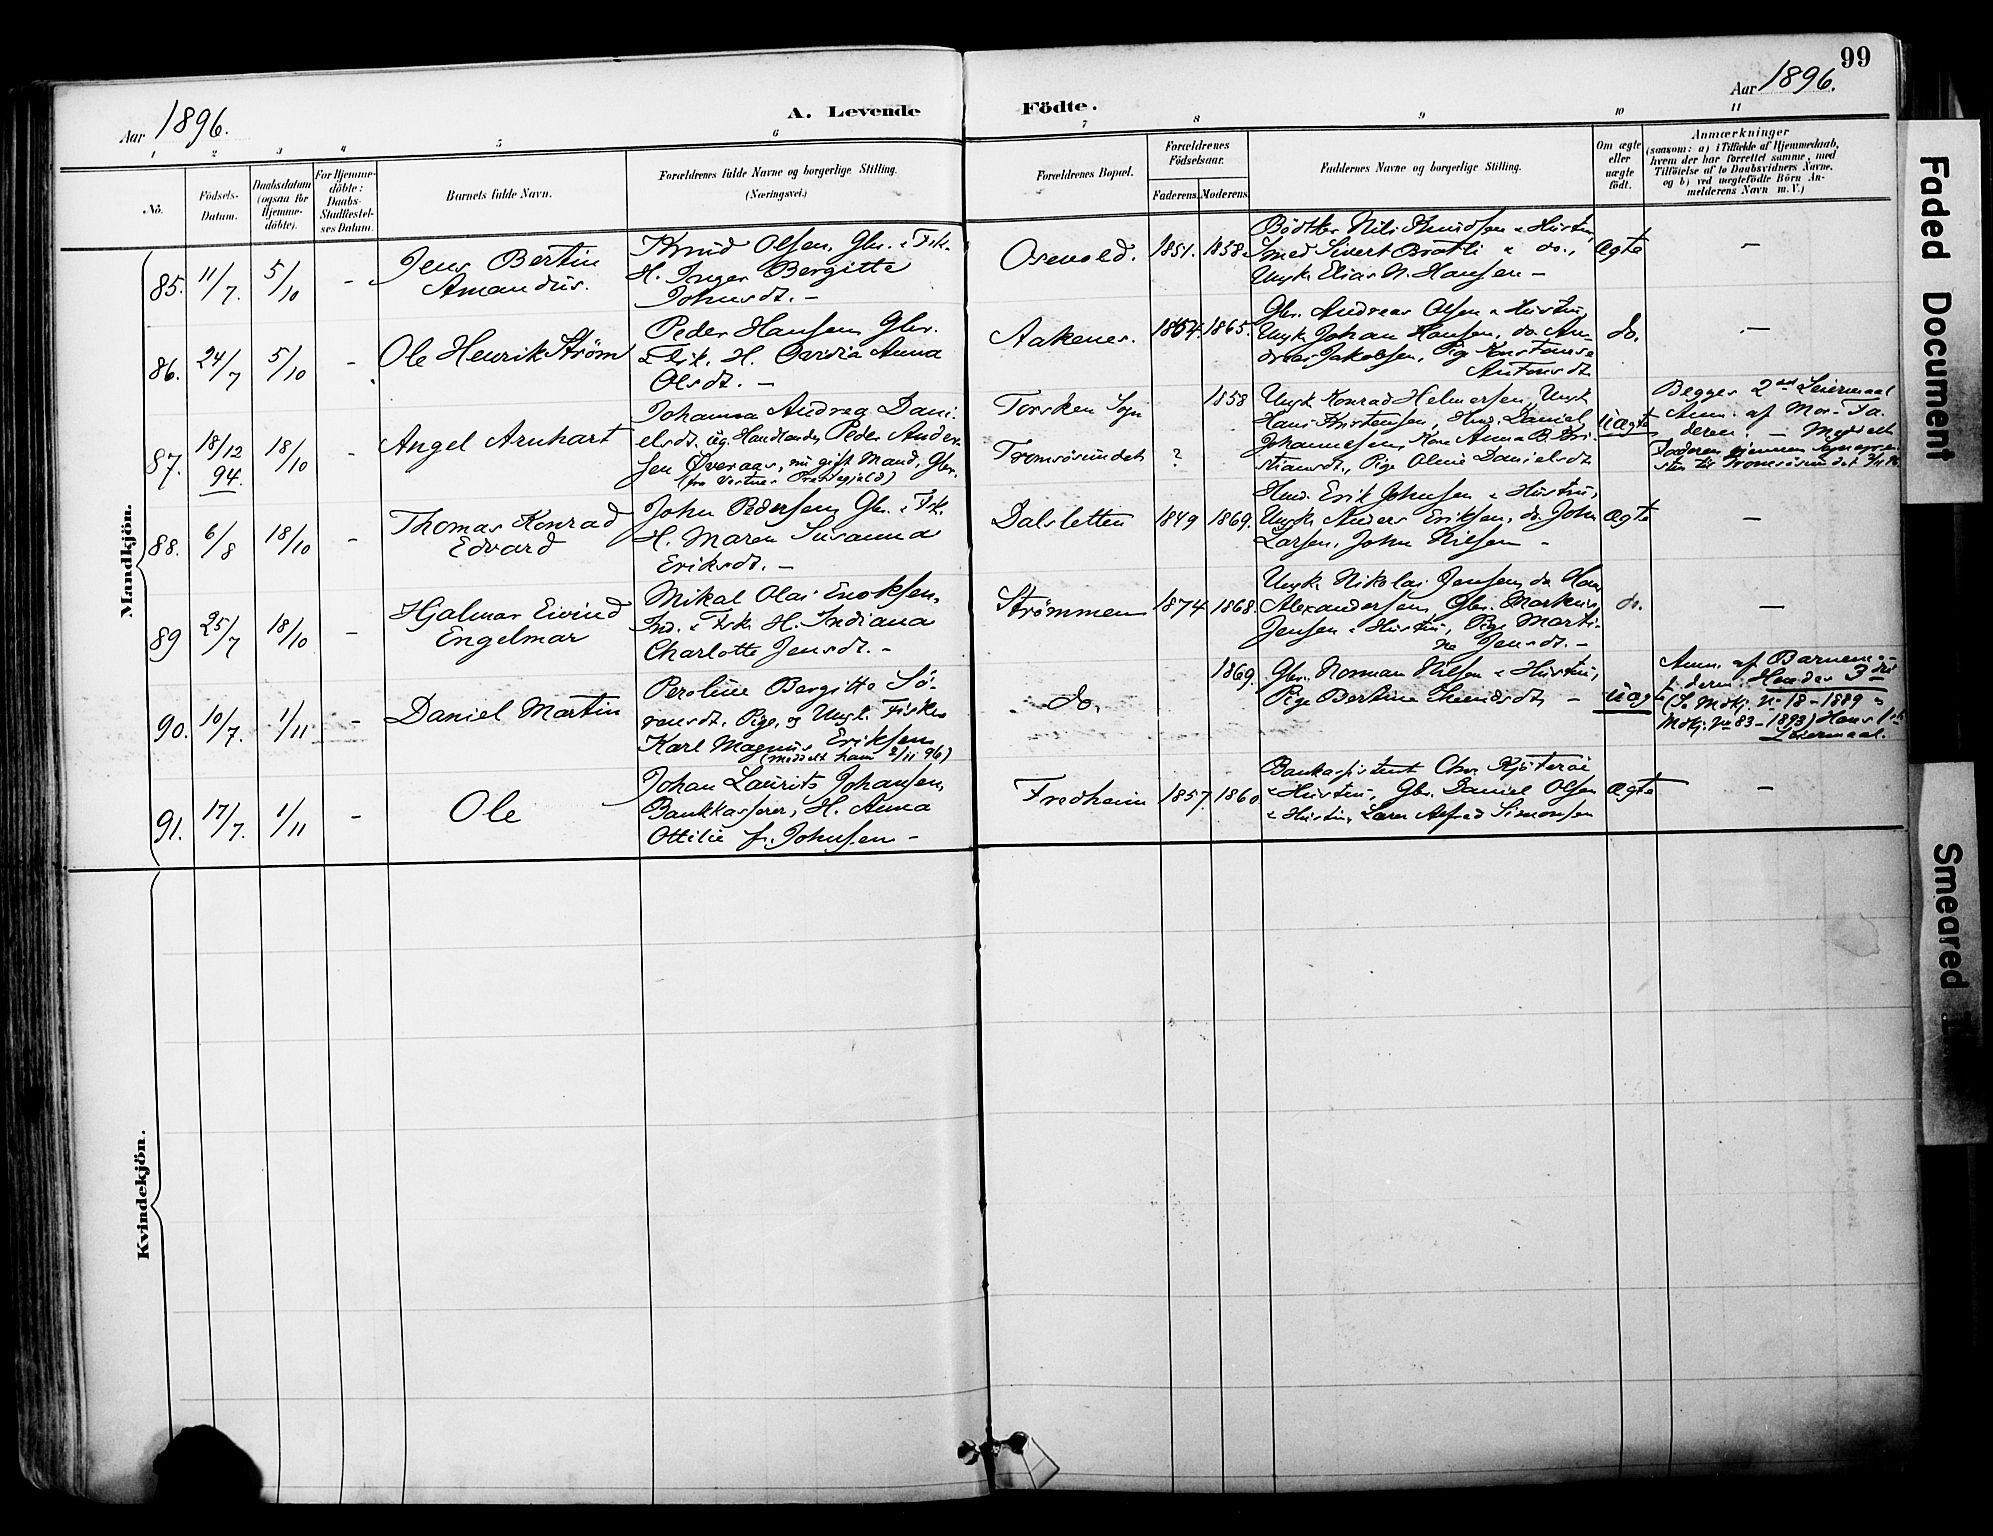 99
Aar 1896.
A. Levende Födte.
Aar 1896.
1 2 3 4 5 6 7 8 9 10 11
No.
Födsels-Datum.
Daabsdatum (ogsaa for Hjemmedöbte).
For Hjemmedöbte: Daabs-Stadfæstelses Datum.
Barnets fulde Navn.
Forældrenes fulde Navne og borgerlige Stilling.
(Næringsvei.)
Forældrenes Bopæl.
Forældrenes Födselsaar.
Faderens. Moderens.
Faddernes Navne og borgerlige Stilling.
Om ægte eller uægte födt.
Anmærkninger
(saasom: a) i Tilfælde af Hjemmedaab,
hvem der har forrettet samme, med
Tilföielse af to Daabsvidners Navne,
og b) ved uægtefödte Börn Anmelderens Navn m. V.)
Mandkjön.
85. 11/7. 5/10 - Jens Bertin
Amandus.
Knud Olsen, Gbr. & Fsk.
H. Inger Bergitte
Johnsdt. -
Osevold. 1851. 1858.
Bödtker Nils Knudsen & Hustru,
Smed Sivert Bratli & do.,
Ungk. Elias N. Hansen -
ægte -
86. 24/7 5/10 - Ole Henrik Strøm
Peder Hansen, Gbr.
& Fsk. H. Anna
Olsdt. -
Aakenes. 1854. 1865.
Gbr. Andreas Olsen & Hustru,
Ungk. Johan Hansen, do. An-
dreas Jakobsen, Pige Konstanse
Antonsdt.
do. -
87. 18/12 94. 18/10 - Angel Arnhart
Johanna Andrea Dani-
elsdt. og Handlende Peder Ander-
sen Øveraas, nu gift Mand, Gbr.
(fra Præstegjæld)
Torsken Sogn
Tromsösundet ? 1858
Ungk. Konrad Helmersen, Ungk.
Hans Kristensen, Daniel
Johannesen, Kone Anna B. Kri-
stiansdt., Pige Oline Danielsdt.
Uægte
Begges 2det Leiermaal
Anm. af Mor. Fa-
deren. - Meddelt
Faderen gjennem Sognepre-
sten til Tromsösundet
88. 6/8 18/10 - Thomas Konrad
Edvard
John Pedersen, Gbr. & Fsk.
H. Maren Susanna
Eriksdt. -
Dalsletten 1849 1869.
Erik Johnsen & Hustru,
Ungk. Anders Eriksen, do. John
Larsen, John Nilsen -
ægte -
89 25/7 18/10 - Hjalmar Eivind
Engelmar
Mikal Olai Enoksen,
Ind. & Fsk. H. Indiana
Charlotte Jensdt. -
Strømmen 1874 1868.
Ungk. Nikolai Jensen, do. Hans
Alexandersen, Gbr. Markus
Jensen & Hustru, Pige Marti-
ne Jensdt. -
do. -
90. 10/7. 1/11 - Daniel Martin
Peroline Bergitte Sö-
rensdt. Pige, og Ungk. Fisker
Karl Magnus Eriksen
(meddelt ham 2/11 96)
do. 1869.
Gbr. Norman Nilsen & Hustru,
Pige Bertine -
uægte
Anm. af Barnem-
f-deren. Hendes 3die
(Se Mdkj. No 18-1889 &
Mdkj. No 83-1893) Hans 1ste
Leiermaal.
91. 17/7. 1/11 - Ole
Johan Laurits Johansen,
Bankkasserer, H. Anna
Ottilie f. Johnsen -
Fredheim 1857. 1860
Bankassistent Chr.
& Hustru, Gbr. Daniel Olsen
& Hustru, Lærer Alfred Simonsen
ægte -
Kvindekjön.
Faded Document
Smeared